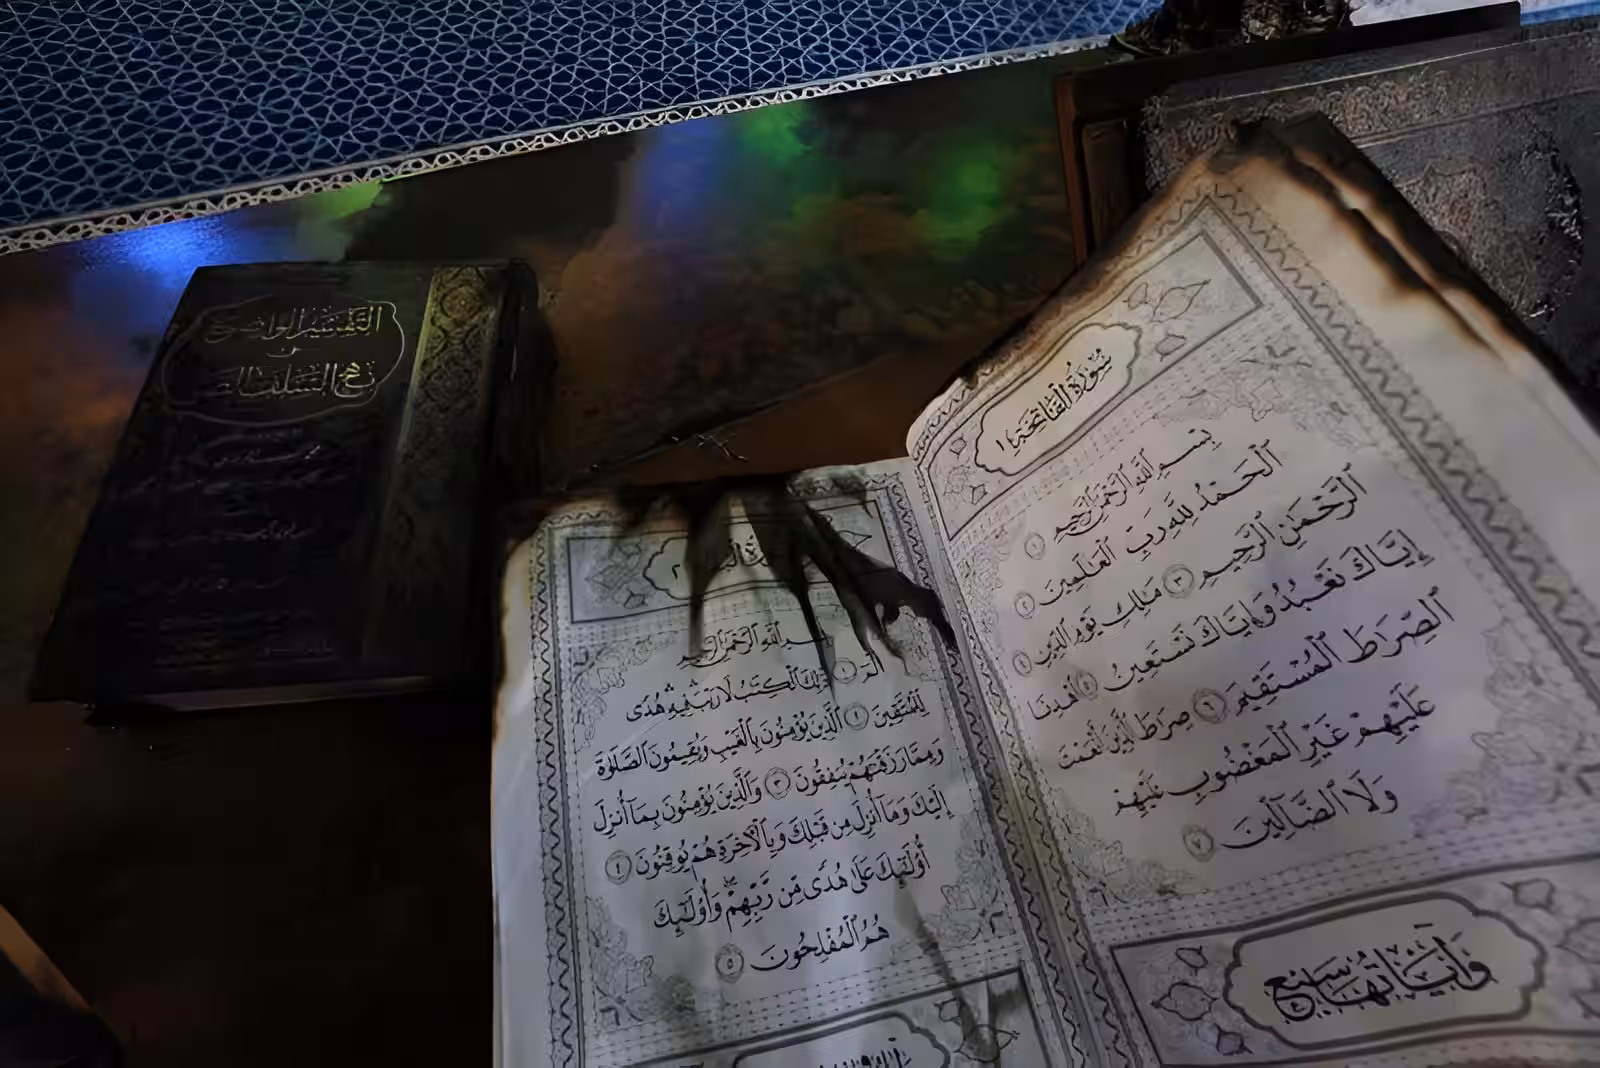 سُورَةُ الْفَاتِحَةِ ١
بِسْمِ ٱللَّهِ ٱلرَّحْمَٰنِ ٱلرَّحِيمِ ١
ٱلْحَمْدُ لِلَّهِ رَبِّ ٱلْعَٰلَمِينَ ٢
ٱلرَّحْمَٰنِ ٱلرَّحِيمِ ٣ مَٰلِكِ يَوْمِ ٱلدِّينِ ٤
إِيَّاكَ نَعْبُدُ وَإِيَّاكَ نَسْتَعِينُ ٥ ٱهْدِنَا
ٱلصِّرَٰطَ ٱلْمُسْتَقِيمَ ٦ صِرَٰطَ ٱلَّذِينَ أَنْعَمْتَ
عَلَيْهِمْ غَيْرِ ٱلْمَغْضُوبِ عَلَيْهِمْ
وَلَا ٱلضَّآلِّينَ ٧
وَآيَاتُهَا سَبْعٌ
٢
ٱللَّهِ ٱلرَّحْمَٰنِ ٱلرَّحِيمِ
الٓمٓ ١ ذَٰلِكَ ٱلْكِتَٰبُ لَا رَيْبَ فِيهِ هُدًى
لِّلْمُتَّقِينَ ٢ ٱلَّذِينَ يُؤْمِنُونَ بِٱلْغَيْبِ وَيُقِيمُونَ ٱلصَّلَوٰةَ
وَمِمَّا رَزَقْنَٰهُمْ يُنفِقُونَ ٣ وَٱلَّذِينَ يُؤْمِنُونَ بِمَآ أُنزِلَ
إِلَيْكَ وَمَآ أُنزِلَ مِن قَبْلِكَ وَبِٱلْءَاخِرَةِ هُمْ يُوقِنُونَ ٤
أُو۟لَٰٓئِكَ عَلَىٰ هُدًى مِّن رَّبِّهِمْ وَأُو۟لَٰٓئِكَ
هُمُ ٱلْمُفْلِحُونَ ٥
التفسير الواضح
نهج السلف